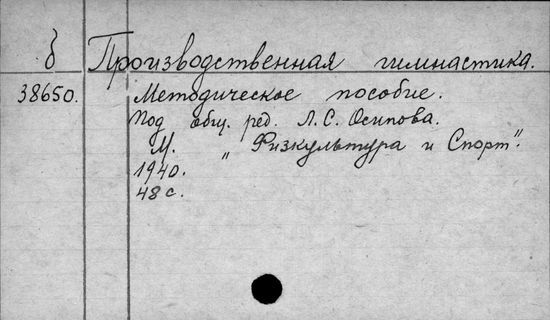 б Производственная гимнастика.
38650. Методическое пособие.
Под общ. ред. Л.С. Осипова.
М. „Физкультура и Спорт".
1940.
48 с.